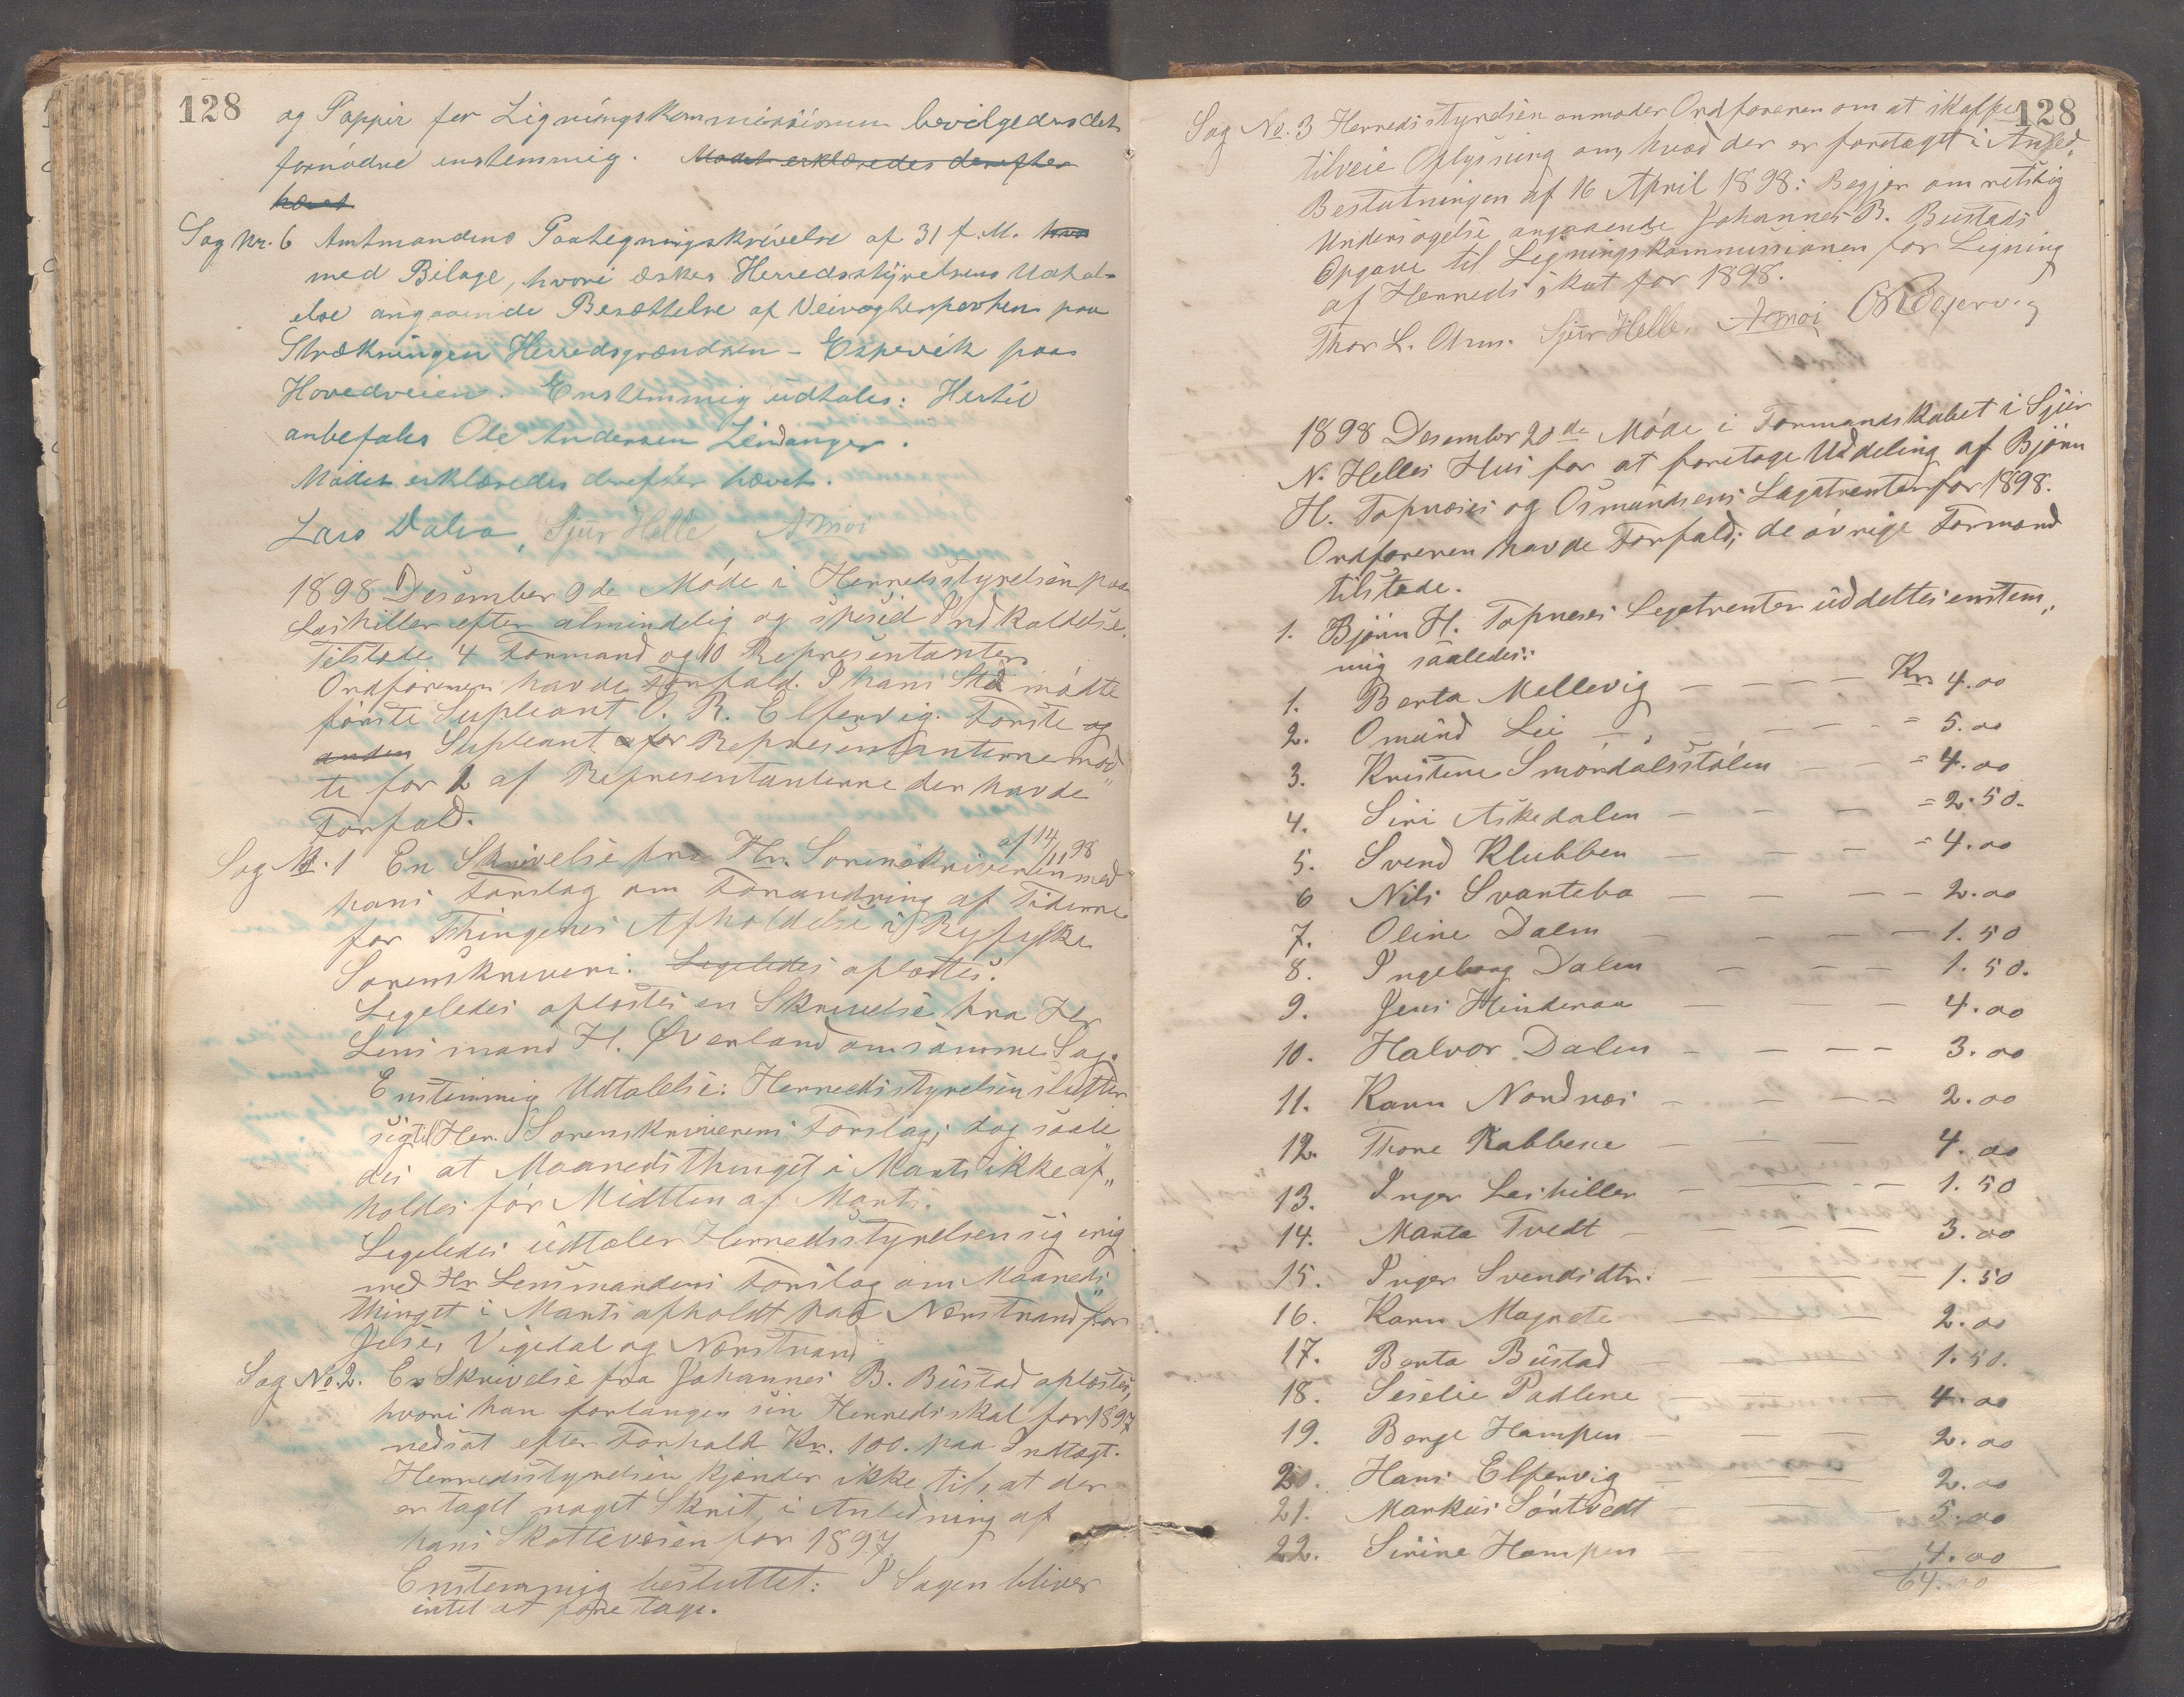 128
og Pappir for Ligningskommissionen bevilgedes det
fornødne enstemmig. Mødet erklæredes derefter
hævet
Sag Nr. 6 Amtmandens Paategningsskrivelse af 31 f. M.
med Bilage, hvori æskes Herredsstyrelsens Udtal-
else angaaende Besættelse af Veivogterposten paa
Strækningen Herredsgrændsen - Espevik paa
Hovedveien. Enstemmig udtales: Hertil
anbefales Ole Andersen Lindanger.
Mødet erklæredes derefter hævet.
Lars Dalva, Sjur Helle A Moi
1898 Desember 9de Møde i Herredsstyrelsen paa
Leshiller efter almindelig og spesiel Indkaldelse.
Tilstede 4 Formænd og 10 Representanter
Ordføreren havde Forfald. I hans Sted mødte
første Supleant O. R. Elfervig. Første og
anden Supleant for Representanterne mød„
te for 2 af Representanterne der havde
Forfald.
Sag Nr. 1 En Skrivelse fra Hr. Sorenskriveren af 14/11 98 med
hans Forslag om Forandring af Tiderne
for Thingenes Afholdelse i Ryfylke
Sorenskriveri. Ligeledes oplæstes.
Ligeledes oplæstes en Skrivelse fra Hr
Lensmand H. Øverland om samme Sag.
Enstemmig Udtalelse: Herredsstyrelsen slutter
sig til Hr. Sorenskriverens Forslag; dog saale„
des at Maanedsthinget i Marts ikke af„
holdes før Midtten af Marts.
Ligeledes udtaler Herredsstyrelsen sig enig
med Hr Lensmandens Forslag om Maaneds„
thinget i Marts afholdt paa Nærstrand for
Jelse, Vigedal og Nærstrand
Sag No. 2. En Skrivelse fra Johannes B. Bustad oplæstes,
hvori han forlanger sin Herredsskat for 1897
nedsat efter Forhold Kr. 100. paa Indtægt.
Herredsstyrelsen kjender ikke til, at der
er taget noget Skrit i Anledning af
hans Skattevæsen for 1897
Enstemmig besluttet: I Sagen bliver
intet at foretage.
128
Sag No. 3 Herredsstyrelsen anmoder Ordføreren om at skaffe
tilveie Oplysning om, hvad der er foretaget i Anled.
Beslutningen af 16 April 1898: Begjær om retslig
Undersøgelse angaaende Johannes B. Bustads
Opgave til Ligningskommissionen for Ligning
af Herredsskat for 1898.
Thor L. Aum. Sjur Helle. A Moi O R Elfervig
1898 Desember 20de Møde i Formandskabet i Sjur
N. Helles Hus for at foretage Uddeling af Bjørn
H. Topnæses og Osmundsens Legatrenter for 1898.
Ordføreren havde Forfald; de øvrige Formænd
tilstede.
1. Bjørn H. Topneses Legatrenter uddeltes enstem„
mig saaledes:
1. Berta Mellevig — — — — Kr 4.00
2. Omund Lei — — — = 5.00
3. Kristene Smørdalsstølen — — = 4.00
4. Siri Askedalen — — — = 2.50.
5. Svend Klubben — — — = 4.00
6 Nils Svartebø — — — — 2.00
7. Oline Dalen — — — — 1.50
8. Ingeborg Dalen — — — 1.50.
9. Jens Hinderaa — — — 4.00
10. Halvor Dalen — — — — 3.00
11. Karen Nordnæs — — — — 2.00
12. Thore Kabbene — — — 4.00
13. Inger Leshiller — — — 1.50
14. Marta Tvedt — — — — 3.00
15. Inger Svendsdtr. — — — 1.50
16. Karen Magrete — — — 2.00
17. Berta Bustad — — — 1.50.
18. Seselie Padlene — — — 4.00
19. Berge Hampen — — — 2.00
20. Hans Elfervig — — — 2.00
21. Markus Sørtvedt — — — 5.00
22. Sirine Hampen — — 4.00
64.00